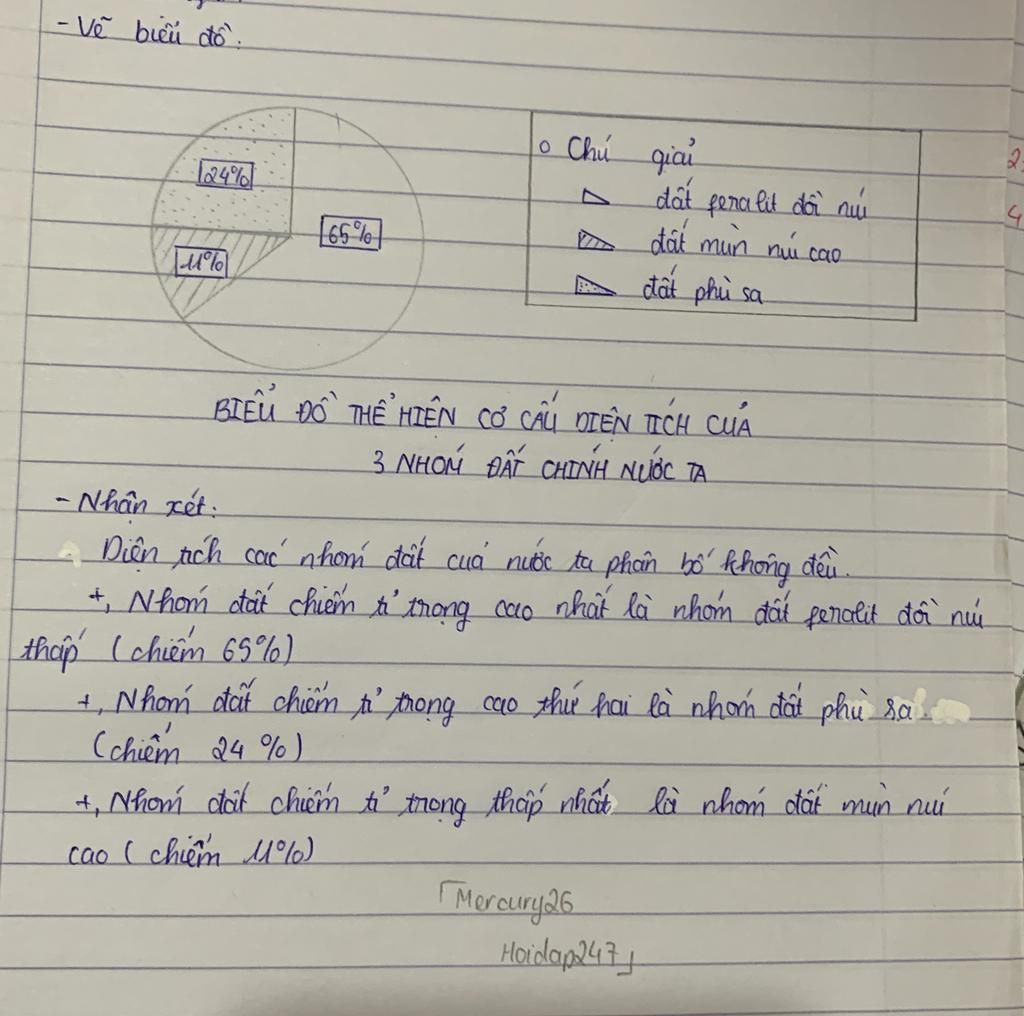 - Vẽ biểu đồ:
24%
65%
11%
o Chú giải
đất feralit đồi núi
đất mùn núi cao
đất phù sa
BIỂU ĐỒ THỂ HIỆN CƠ CẤU DIỆN TÍCH CỦA
3 NHÓM ĐẤT CHÍNH NƯỚC TA
- Nhận xét:
Diện tích các nhóm đất của nước ta phân bố không đều.
+, Nhóm đất chiếm tỉ trọng cao nhất là nhóm đất feralit đồi núi
thấp (chiếm 65%)
+, Nhóm đất chiếm tỉ trọng cao thứ hai là nhóm đất phù sa.
(chiếm 24%)
+, Nhóm đất chiếm tỉ trọng thấp nhất là nhóm đất mùn núi
cao (chiếm 11%)
「Mercury26
Hoidap247」